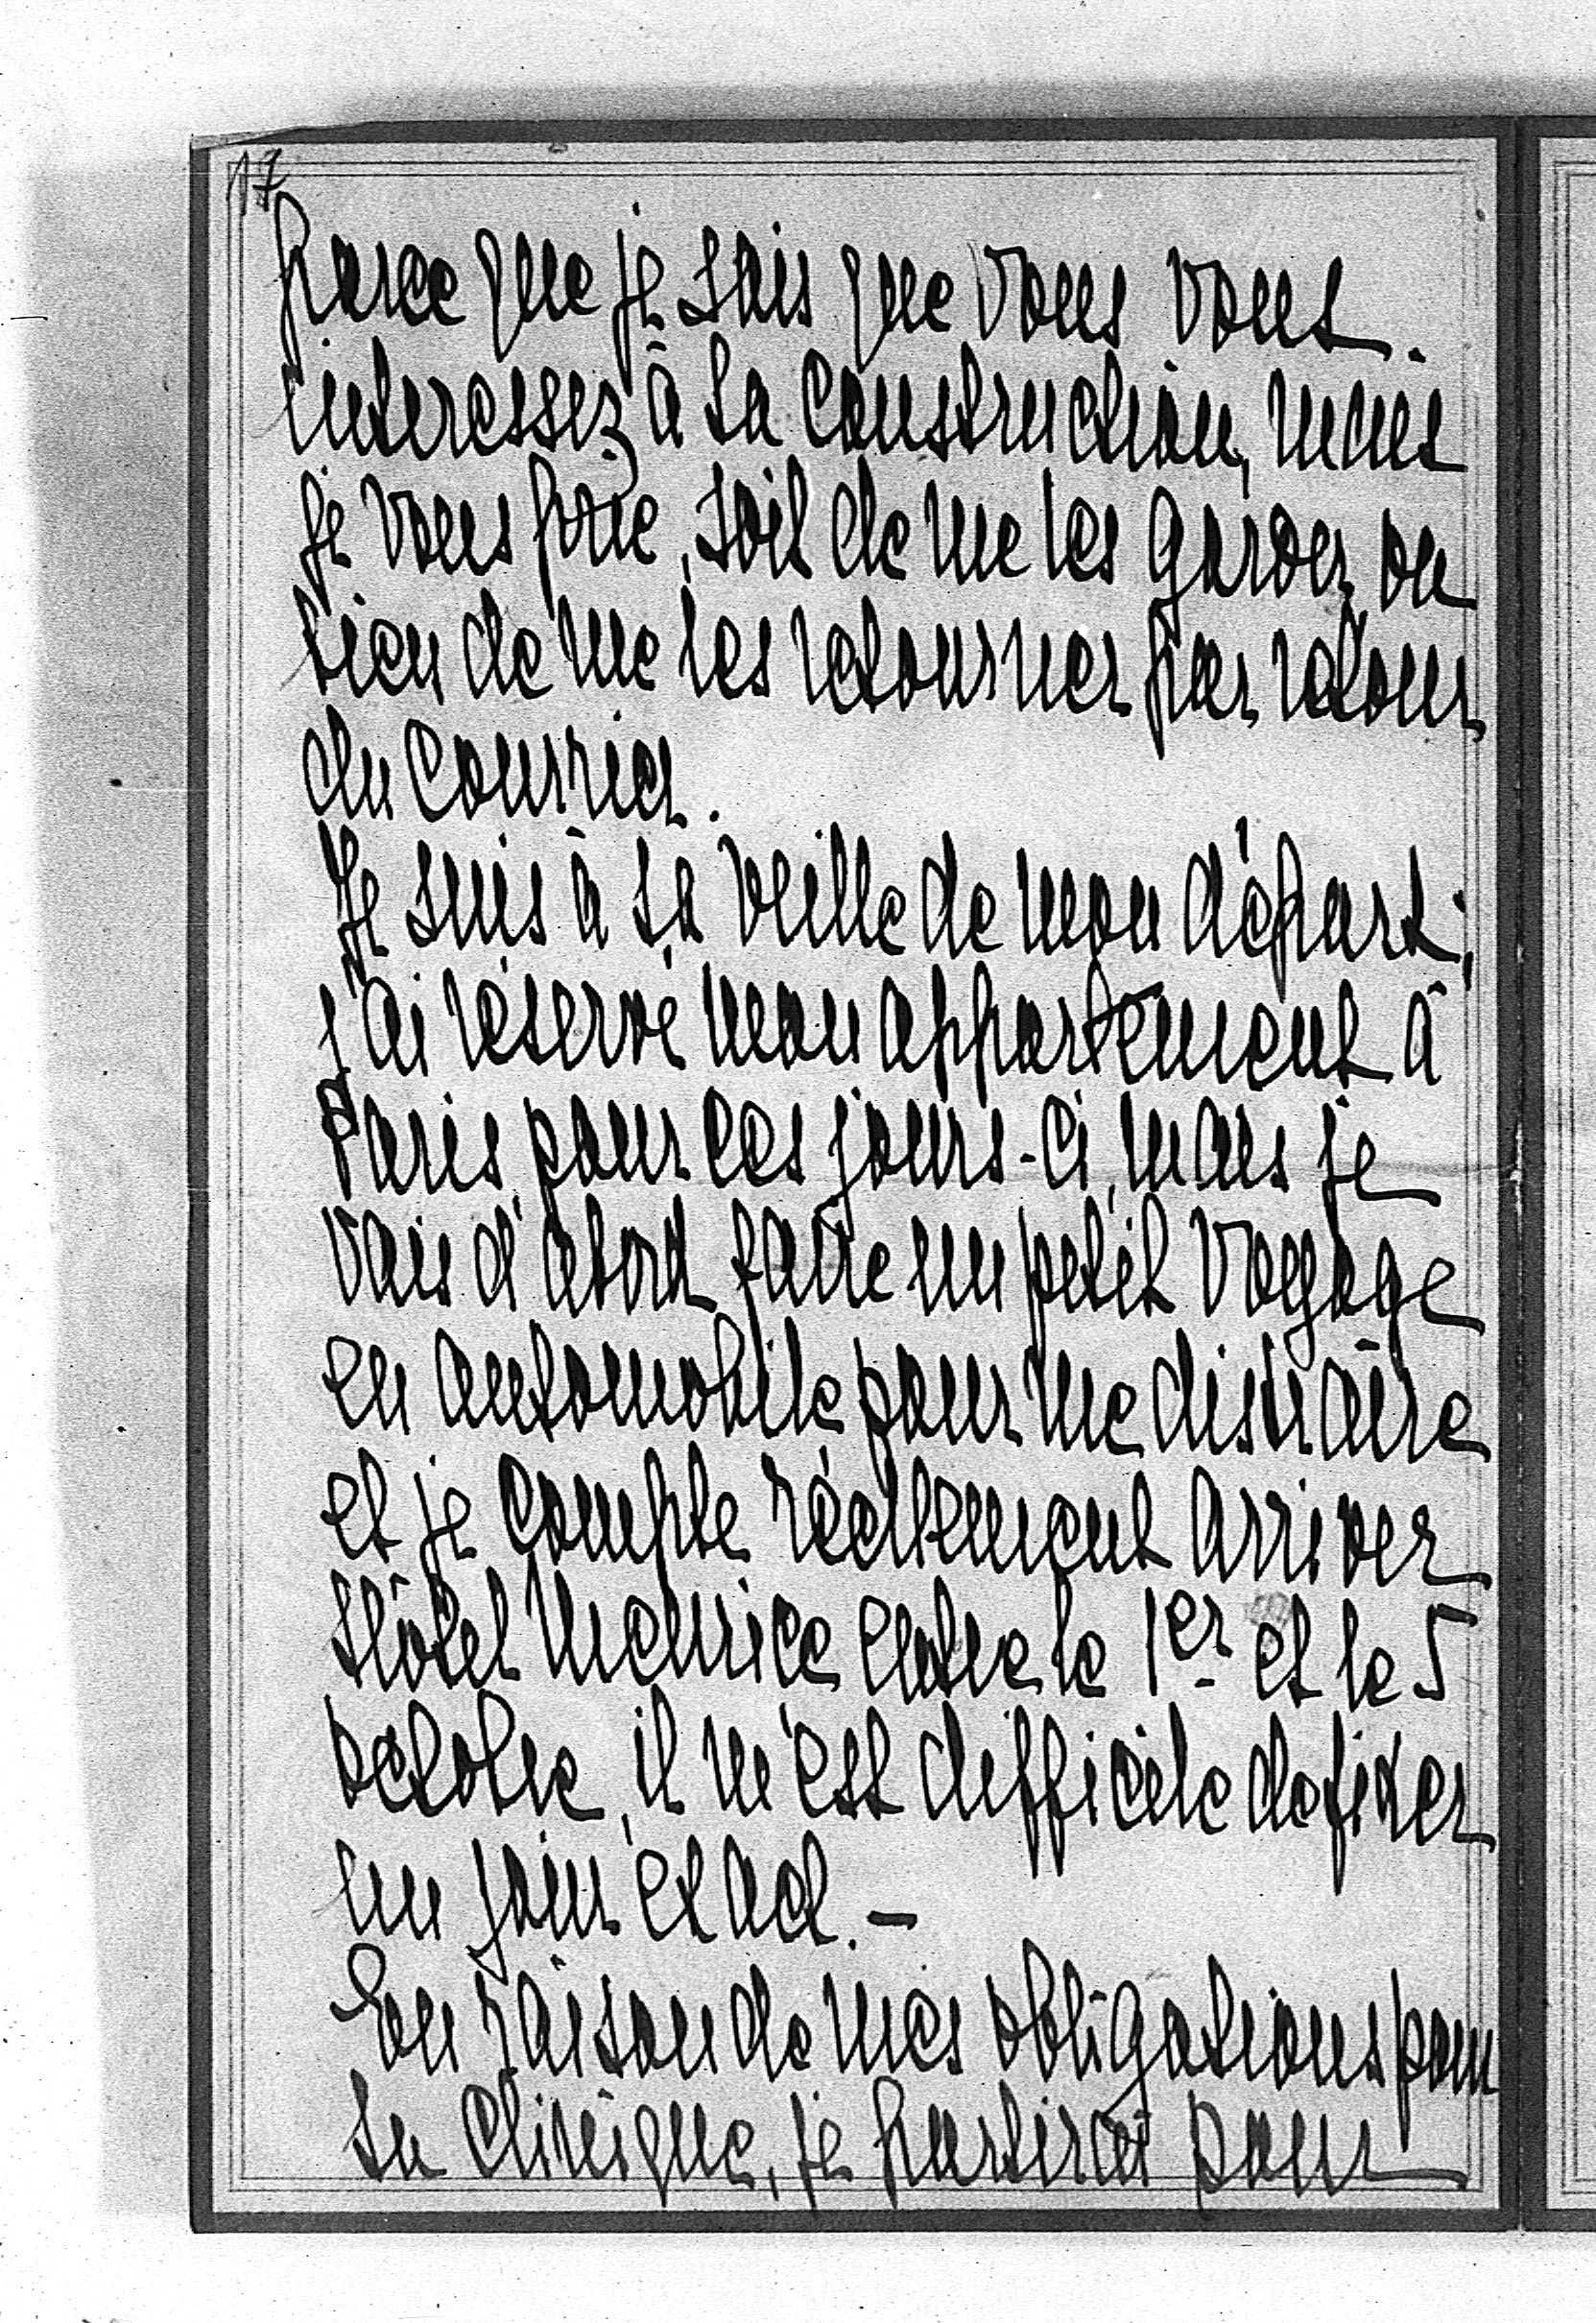 17
parce que je sais que vous vous
interessez à la construction, mais
je vous prie, soit de me les garder, ou
bien de me les retourner par retour
du courrier.
Je suis à la veille de mon départ;
j'ai réservé mon appartement à
Paris, pour ces jours-ci, mais je
vais d'abord faire un petit voyage
en automobile pour me distraire
et je compte réellement arriver
Hôtel Meurice entre le 1er et le 5
octobre, il m'est difficile de fixer
un jour exact. –
En raison de mes obligations pour
la clinique, je partirai pour